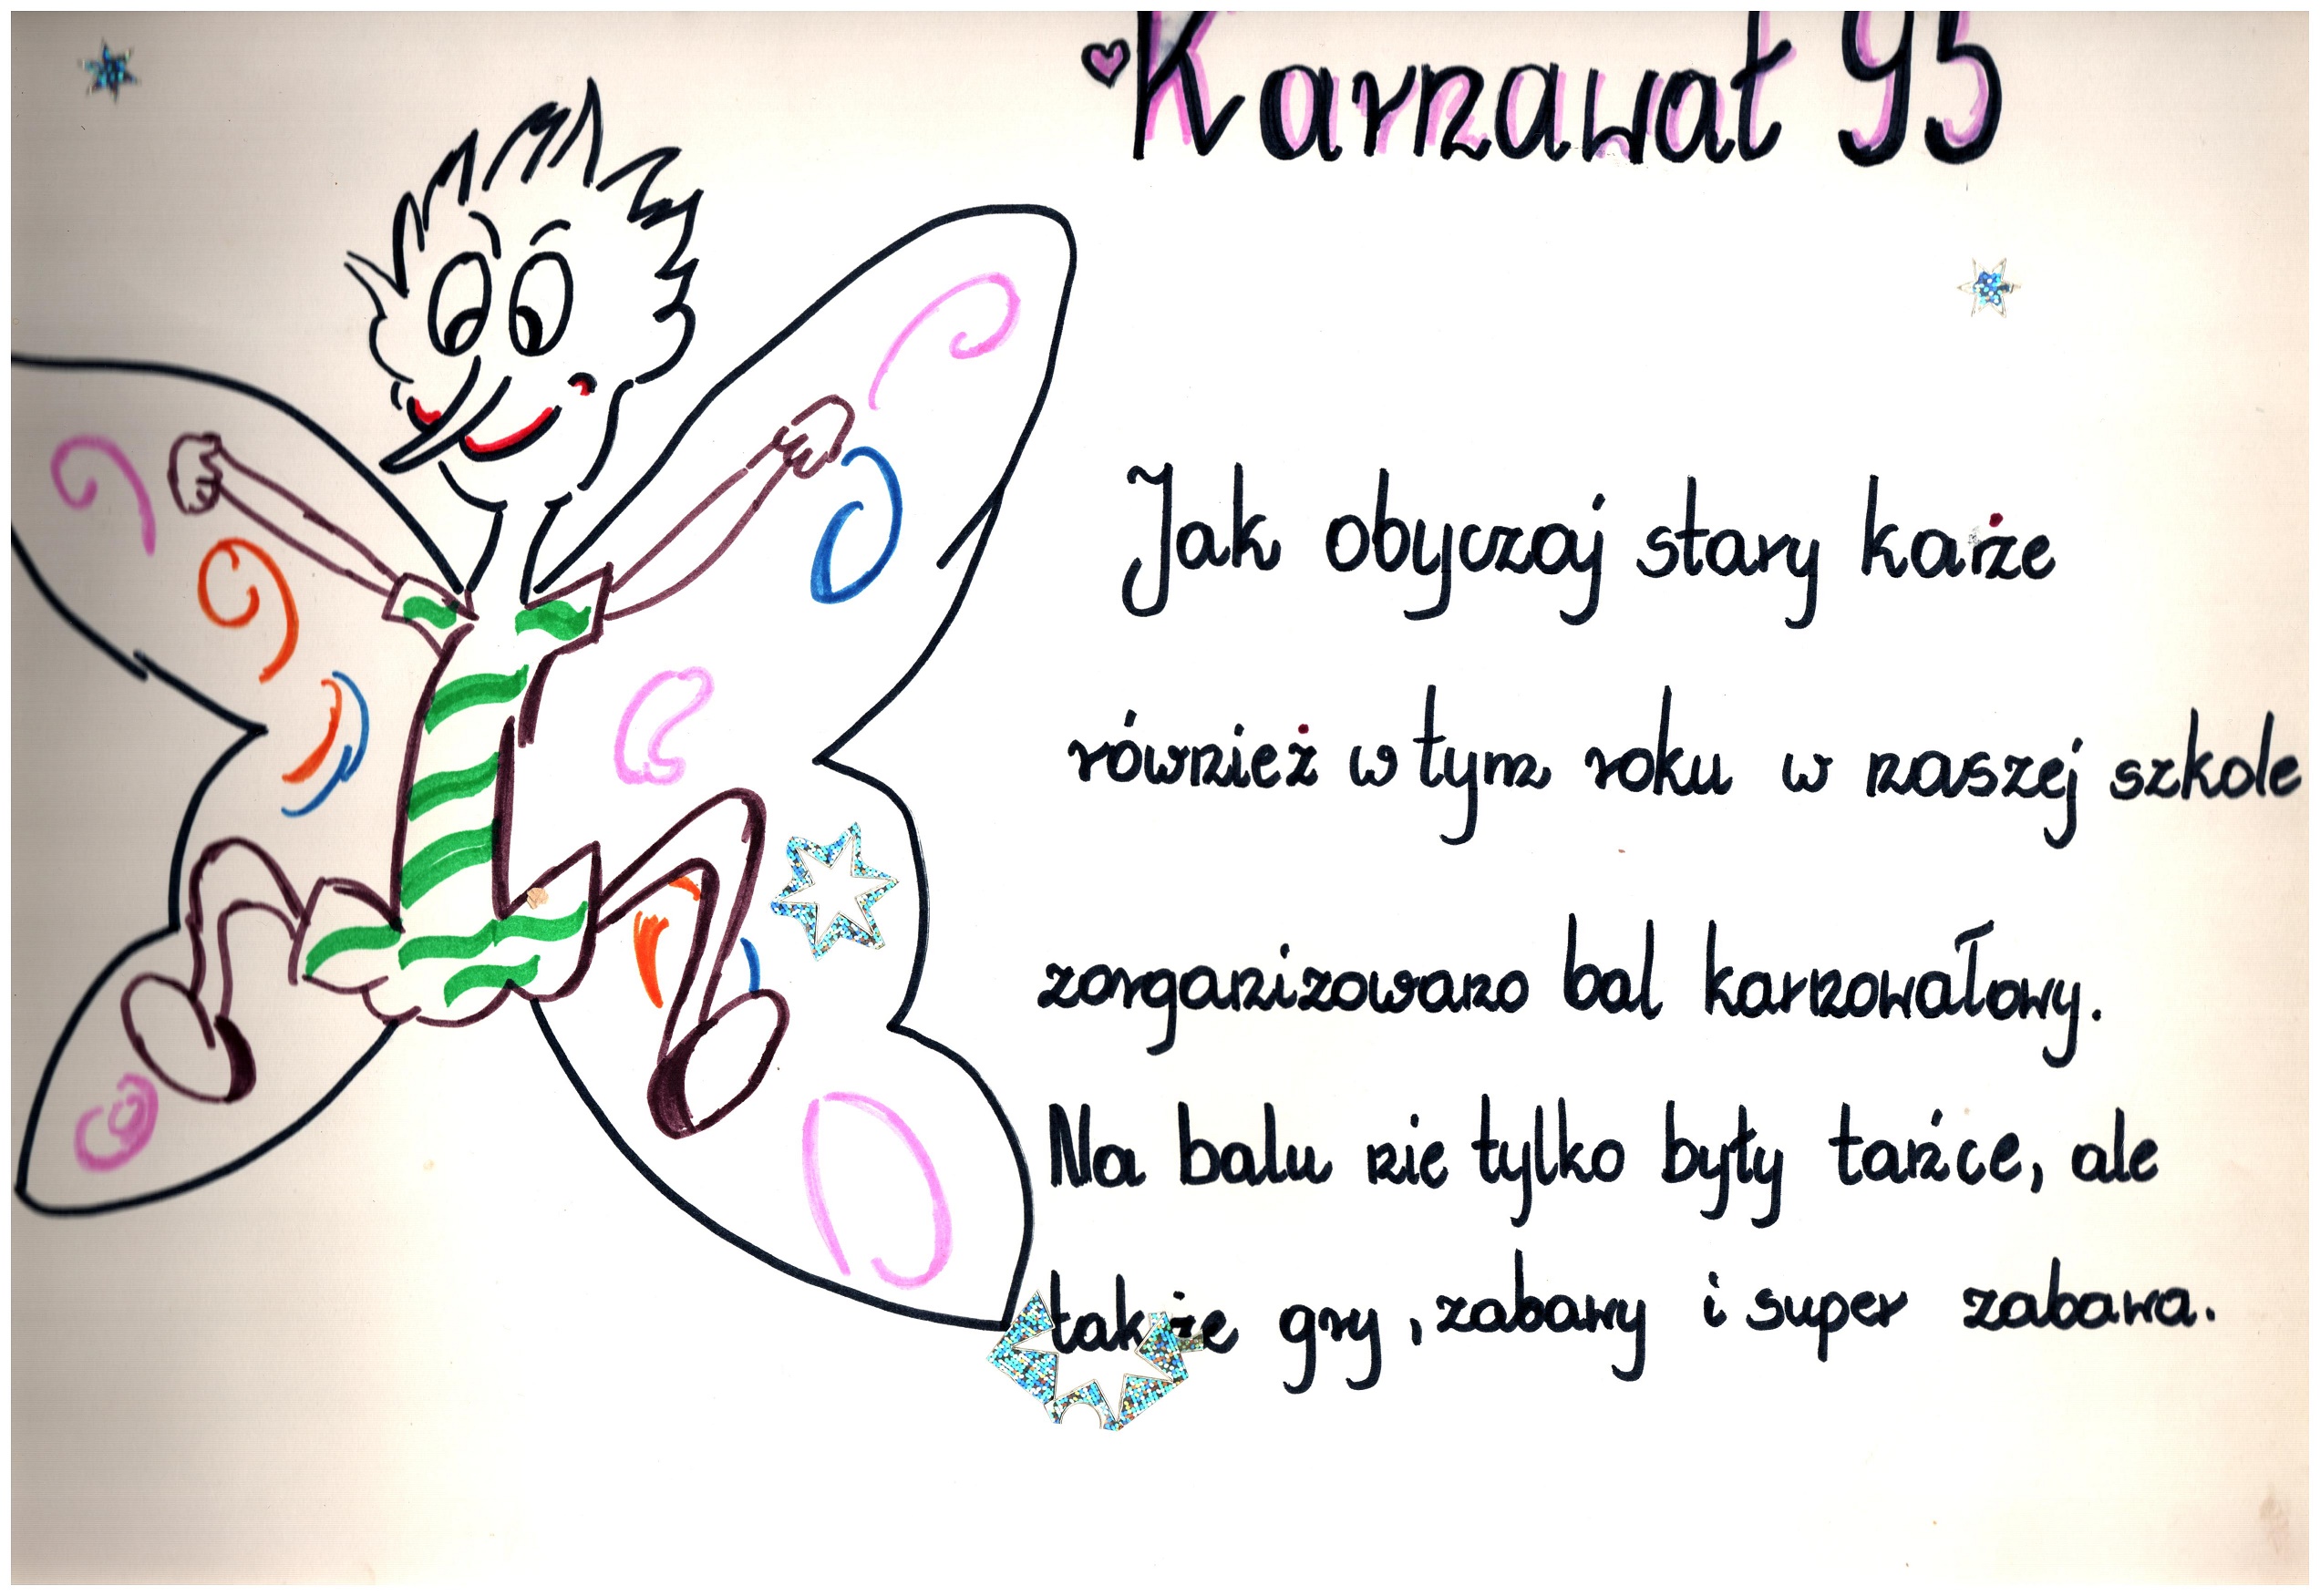 Karnawał 95
Jak obyczaj stary każe
również w tym roku w naszej szkole
zorganizowano bal karnowałowy.
Na balu nie tylko były tańce, ale
także gry, zabawy i super zabawa.